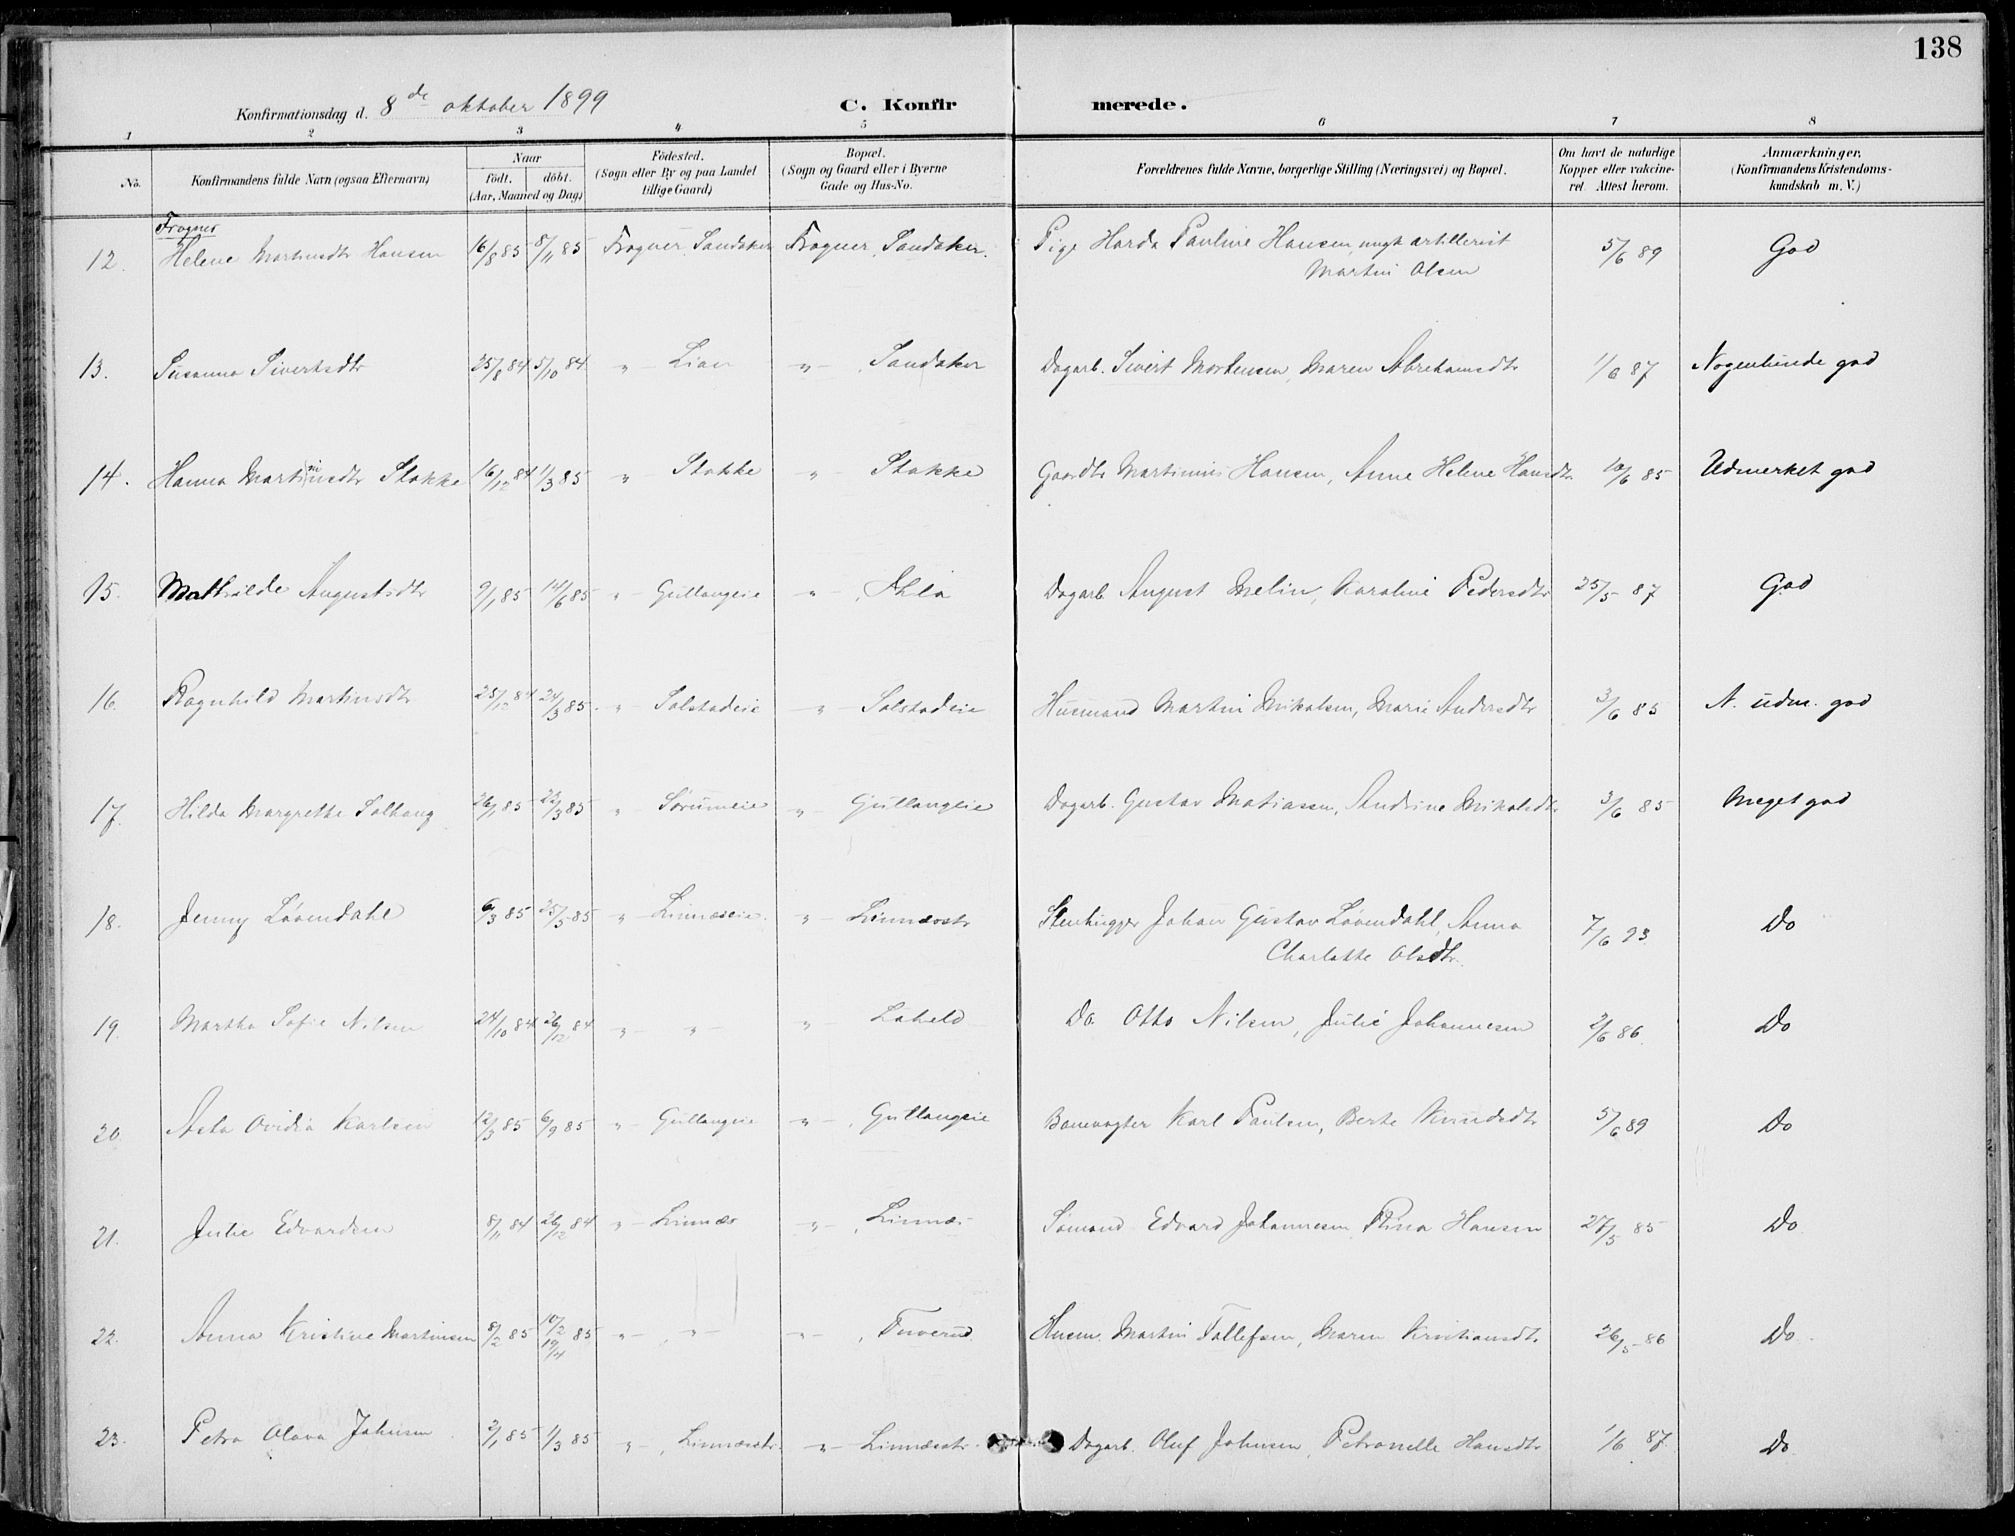 138
Konfirmationsdag d. 8de oktober 1899
C. Konfirmerede.
1 2 3 4 5 6 7 8
No. Konfirmandens fulde Navn (ogsaa Efternavn) Naar födt. döbt. (Aar, Maaned og Dag) Födested. (Sogn eller By og paa Landet tillige Gaard) Bopæl. (Sogn og Gaard eller i Byerne Gade og Hus-No. Forældrenes fulde Navne, borgerlige Stilling (Næringsvei) og Bopæl. Om havt de naturlige Kopper eller vakcineret. Attest herom. Anmærkninger. (Konfirmandens Kristendomskundskab m. V.)
Frogner
12. Helene Martinsdtr Hansen 16/8 85 8/11 85 Frogner Sandaker Frogner, Sandaker. Pige Harda Pauline Hansen, ungk artillerist 5/6 89 God
Martin Olsen
13. Susanna Sivertsdtr 25/8 84 5/10 84 " - Lian " - , Sandaker Dagarb. Sivert Mortensen, Maren Abrahamsdtr 1/6 87 Nogenlunde god
14. Hanna Martinusdtr Stokke 16/12 84 1/3 85 " Stokke " Stokke Gaardbr Martinius Hansen, Anne Helene Hansdtr. 10/6 85 Udmerket god
15. Mathilde Augustsdtr 9/1 85 14/6 85 " - Gullaugeie " - , Dagarb. August Melin, Karoline Pedersdtr 25/5 87 God
16. Ragnhild Martinsdtr 25/12 84 24/3 85. " - Solstadeie " - Solstadeie Husmand Martin Mikalsen, Marie Andersdtr 3/6 85 N. udm. god
17. Hilda Margrethe Solhaug 26/1 85 22/3 85 " Sørumeie " - Gullaugeie Dagarb. Gustav Matiassen, Andrine Mikalsdtr. 3/6 85 Meget god
18. Jenny Løvendahl 6/3 85 25/5 85 " - Linnæseie. " - Linnæsstr Stenhugger Johan Gustav Løvendahl, Anna 7/6 93 Do
Charlotte Olsdtr.
19. Martha Sofie Nilsen 24/10 84 26/12 84 " - " - " - Laheld Do. Otto Nilsen, Julie Johannesen 2/6 86. Do
20. Asta Ovidia Karlsen 12/3 85 6/9 85 " - Gullaugeie " - , Gullaugeie Banevogter Karl Paulsen, Berte Knudsdtr 5/6 89 Do
21. Julie Edvardsen 8/11 84 26/12 84 " - Linnæs " - , Linnæs Sømand Edvard Johannesen, Stina Hansen 27/5 85 Do
22. Anna Kristine Martinsen 8/2 85 10/2 19/4 85 " - " - " - , Tuverud. Husm. Martin Tollefsen, Maren Kristiansdtr. 26/5 - 86 Do.
23. Petra Olava Johnsen 2/1 85 1/3 85 " - , Linnæsstr. " - Linnæsstr. Dagarb. Oluf Johnsen, Petronelle Hansdtr 1/6 87. Do.